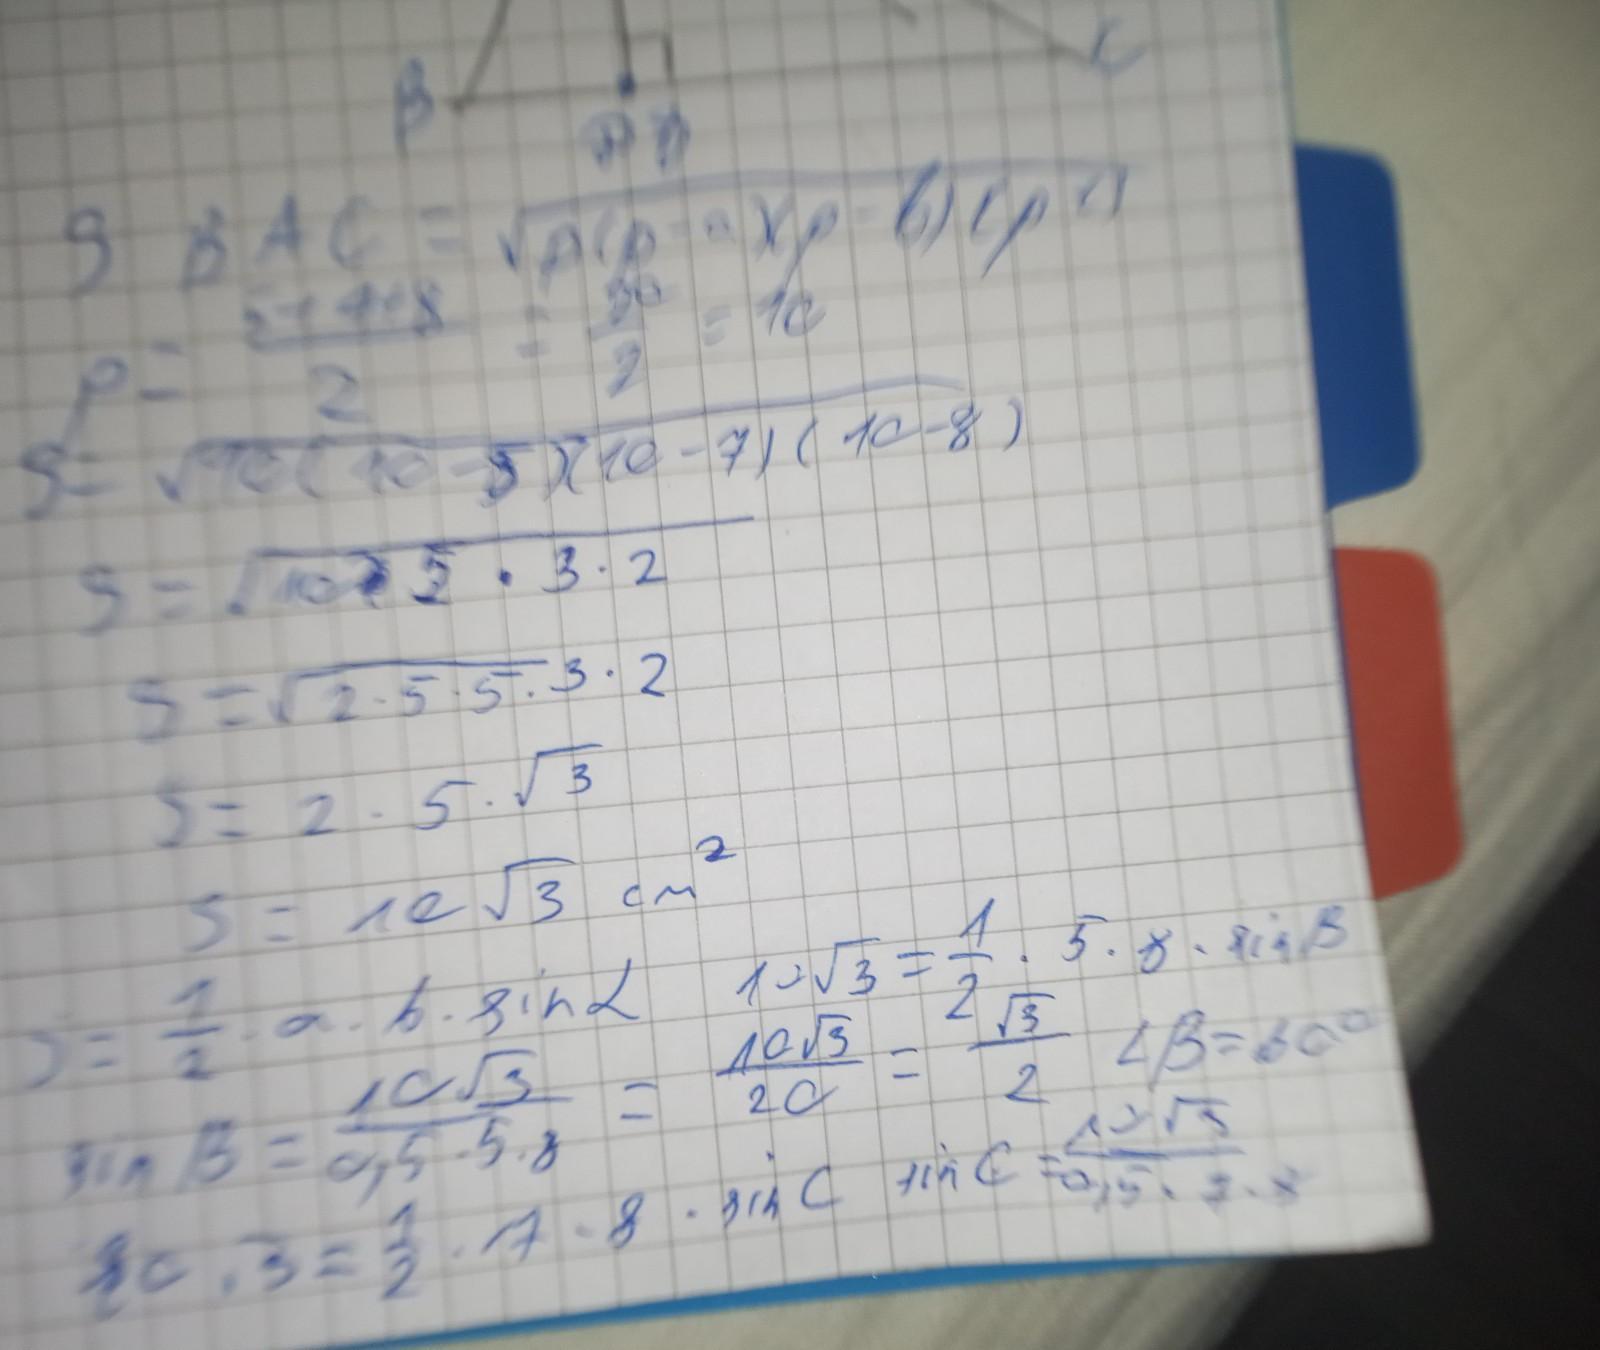 B C
S BAC = √p(p-a)(p-b)(p-c)
p = 5+7+8/2 = 20/2 = 10
S = √10(10-5)(10-7)(10-8)
S = √10·5·3·2
S = √2·5·5·3·2
S = 2·5·√3
S = 10√3 см²
S = 1/2·a·b·sinα 10√3 = 1/2·5·8·sinB
sinB = 10√3/0,5·5·8 = 10√3/20 = √3/2 ∠B=60°
10·3 = 1/2·7·8·sinC sinC = 10√3/0,5·7·8